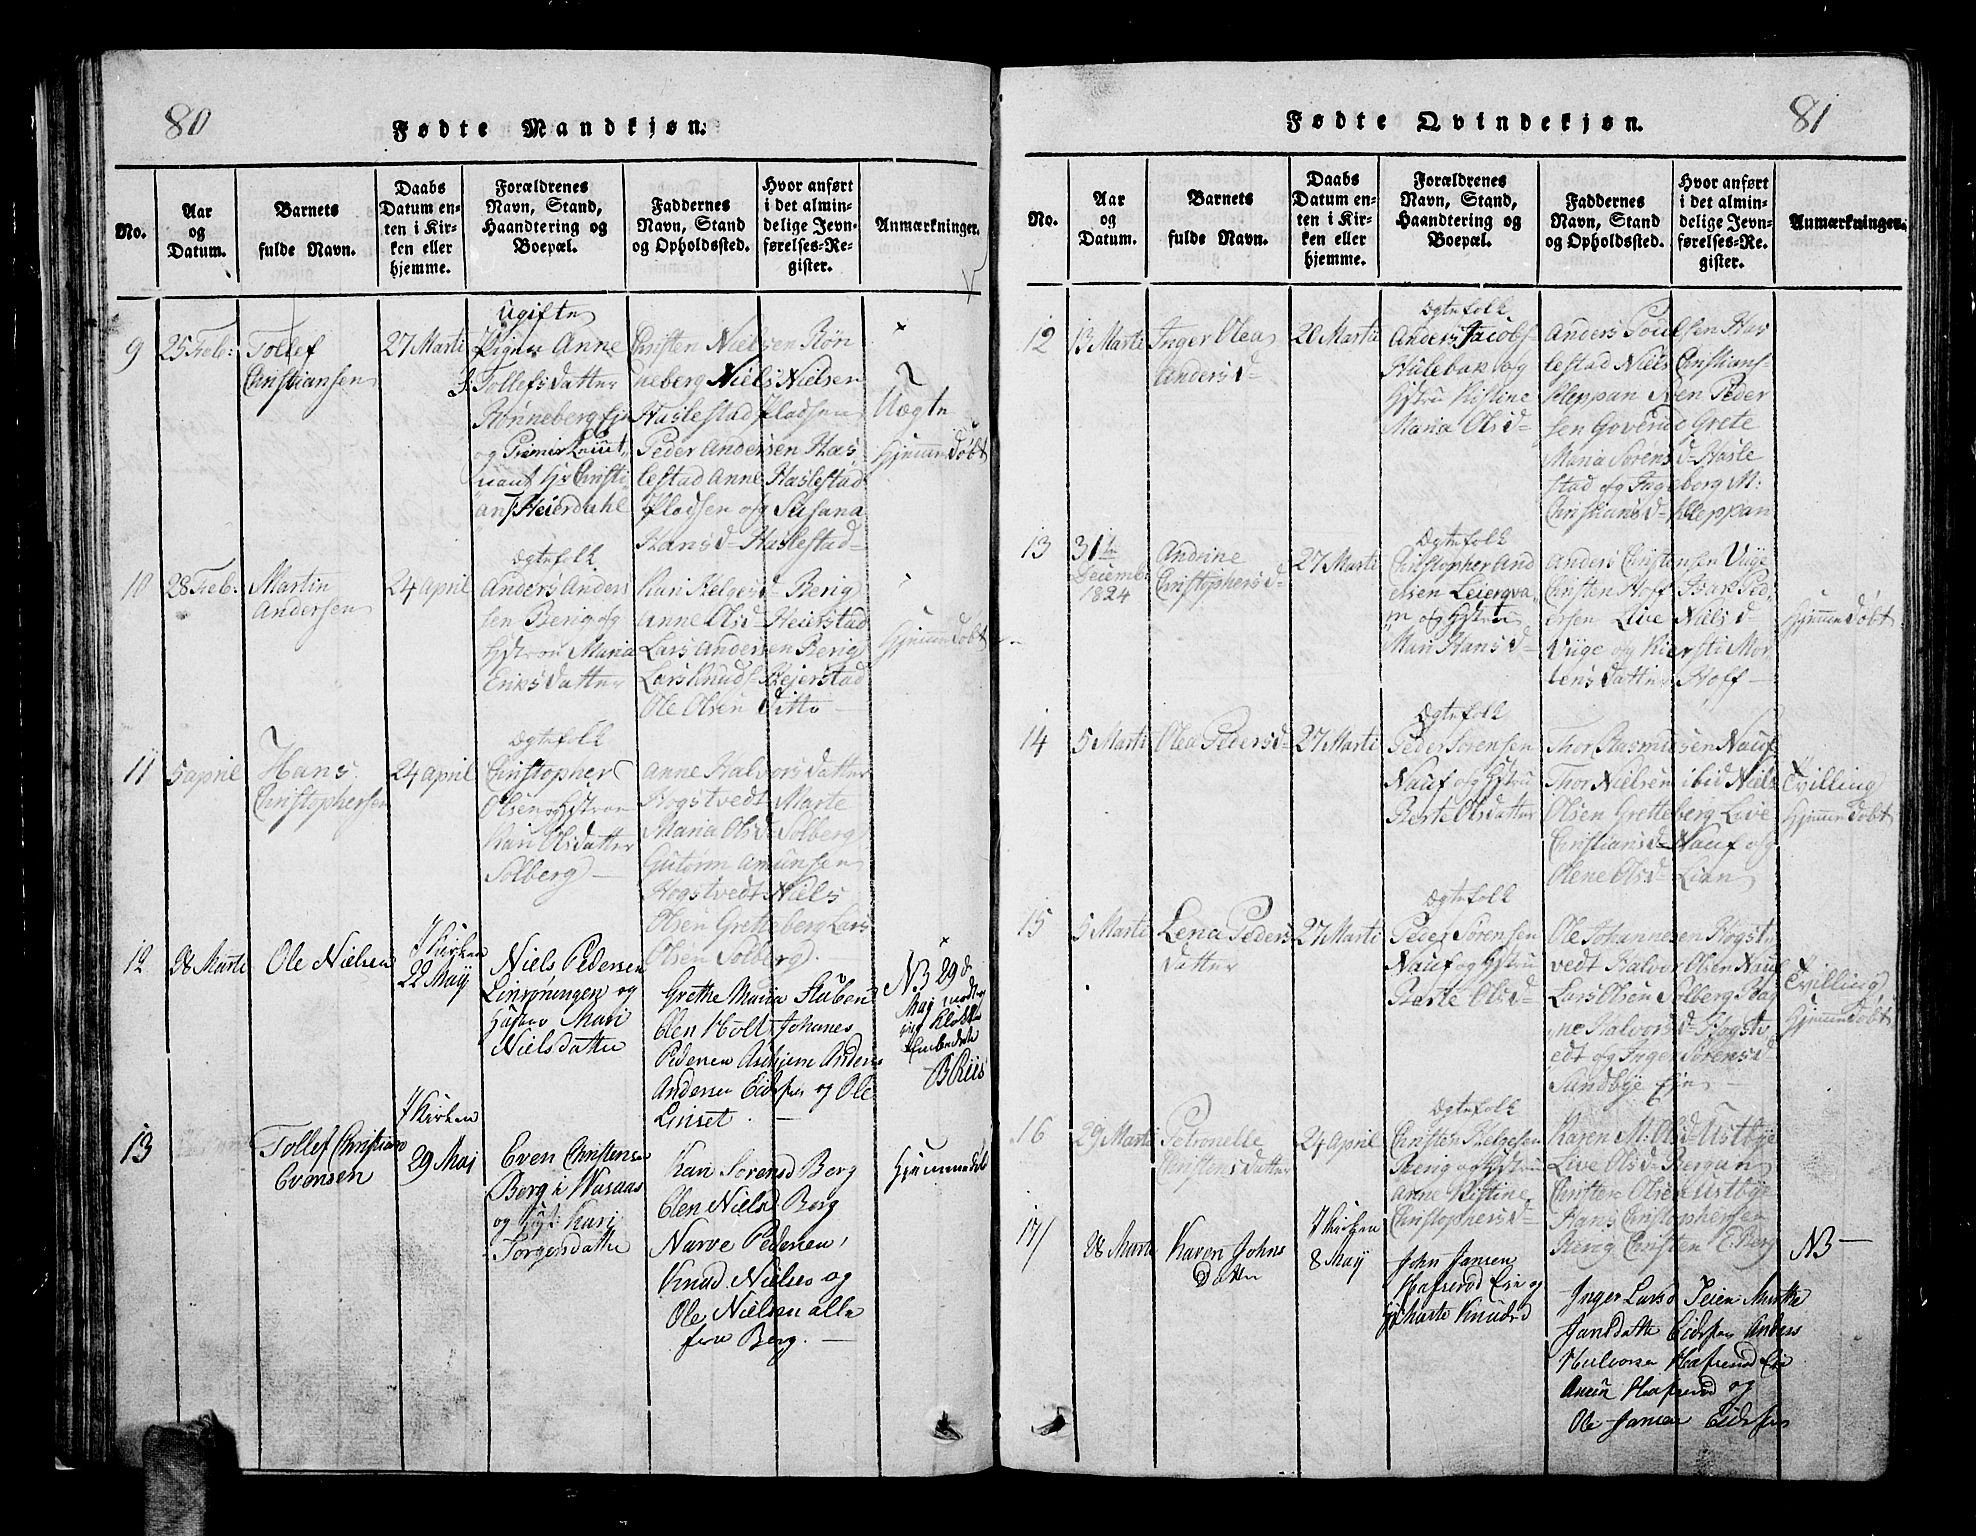 80
Fødte Mandkjøn.
No.
Aar
og
Datum.
Barnets
fulde Navn.
Daabs
Datum en-
ten i Kir-
ken eller
hjemme.
Forældrenes
Navn, Stand,
Haandtering og
Boepæl.
Faddernes
Navn, Stand
og Opholdssted.
Hvor anført
i det almin-
delige Jevn-
førelses-Re-
gister.
Anmærkninger.
9
25 Feb:
Tollef
Christiansen
27 Marti
Ugifte
Pigen Anne
Tollefsdatter
Rønneberg Eje
og Premier Lieut
nant Hr Christi
ans Heierdahl
Christen Nielsen Røn
neberg Niels Nielsen
Haslestad Pladsen
Peder Andersen Has
lestad Anne Haslestad
Pladsen og Susana
Hansd- Haslestad-
Uægte
Hjemmedøbt
10
28 Feb:
Martin
Andersen
24 April
Ægtefolk
Anders Anders
sen Berig og
Hystrou Maria
Eriksdatter
Kari Helgesd- Berig
Anne Olsd- Heierstad
Lars Andersen Berig
Lars Knuds- Hejerstad
Ole Olsen Ditto -
Hjemmedøbt
11
5 april
Hans
Christophersen
24 April
Ægtefolk
Christopher
Olsen og Hystrou
Kari Olsdatter
Solberg -
Anne Halvorsdatter
Hogstvedt Marte
Maria Olsd- Solberg
Gutorm Amunsen
Hogstvedt Niels
Olsen Gretteberg Lars
Olsen Solberg -
12
28 Marti
Ole Nielsen
I Kirken
22 May
Niels Pedersen
Linrøningen og
Hustro Mari
Nielsdatter
Grethe Maria
Holt Johanes
Pedersen Anders
Andersen og Ole
Linset -
NB 29 d
May
Embedete
B Riis
13
Tollef Christian
Evensen
I Kirken
29 Maj
Even Christensen
Berg i Waraas
og Kari
Torgersdatter
Kari Sorensd Berg
Nielsd Berg
Narve Pedersen,
Knud Nielsen og
Ole Nielsen alle
fra Berg. -
Hjemmedøbt
81
Fødte Qvindekjøn.
No.
Aar
og
Datum.
Barnets
fulde Navn.
Daabs
Datum en-
ten i Kir-
ken eller
hjemme.
Forældrenes
Navn, Stand,
Haandtering og
Boepæl.
Faddernes
Navn, Stand
og Opholdssted.
Hvor anført
i det almin-
delige Jevn-
førelses-Re-
gister.
Anmærkninger.
12
13 Marti
Inger Olea
Andersd-
20 Martii
Ægtefolk
Anders Jacobs-
Hulebak og
Hystru Kistine
Maria Olsd-
Anders Poulsen Has
lestad Niels Christians-
Kleppan Peder
sen Grete
Maria Sørensd- Hasle
stad og Ingeberg M:
Christiansd- Kleppan
13
31te
Decemb:
1824
Andrine
Christophersd-
27 Marti
Ægtefolk
Christopher And
ersen Leierqva
rn og Hystru
Mari Hansd-
Anders Christensen Vige
Christen Hoff Isak Ped
ersen Live Nielsd-
Vige og Kiersti Mor
tensdatter Hoff -
Hjemmedøbt
14
5 Marti
Olea Pedersd-
27 Marti
Ægtefolk
Peder Sørensen
Nauf og Hystru
Berte Olsdatter
Thor Rasmusen Nauf
Thor Nielsen ibid Niels
Olsen Gretteberg Live
Christiansd- Nauf og
Olene Olsd- Lien
Tvilling
Hjemmedøbt
15
5 Marti
Lena Peders
datter
27 Marti
Ægtefolk
Peder Sørensen
Nauf og Hystru
Berte Olsd-
Ole Johannesen Hogst
vedt Halvor Olsen Nauf
Lars Olsen Solberg Rag
ne Halvorsd- Hogstv
edt og Inger Sørensd
Sandbye Eje -
Tvilling
Hjemmedøbt
16
29 Marti
Petronelle
Christensdatter
24 April
Ægtefolk
Christen Helgesen
Berig og Hystru
Anne Kistine
Christophersd-
Karen M: Olsd Ustbye
Live Olsd- Bergan
Christen Olsen Ustbye
Hans Christophersen
Berig Christen E: Berg
17
28 Marti
Karen Johns
datter
I Kirken
8 May
John Jansen
Hafserød Eie og
Marte Knudsd
Inger Larsd Teien Marthe
Jansdatter Anders
Halvorsen Hafserød Eie
Hafserød og
Ole Jansen
NB -